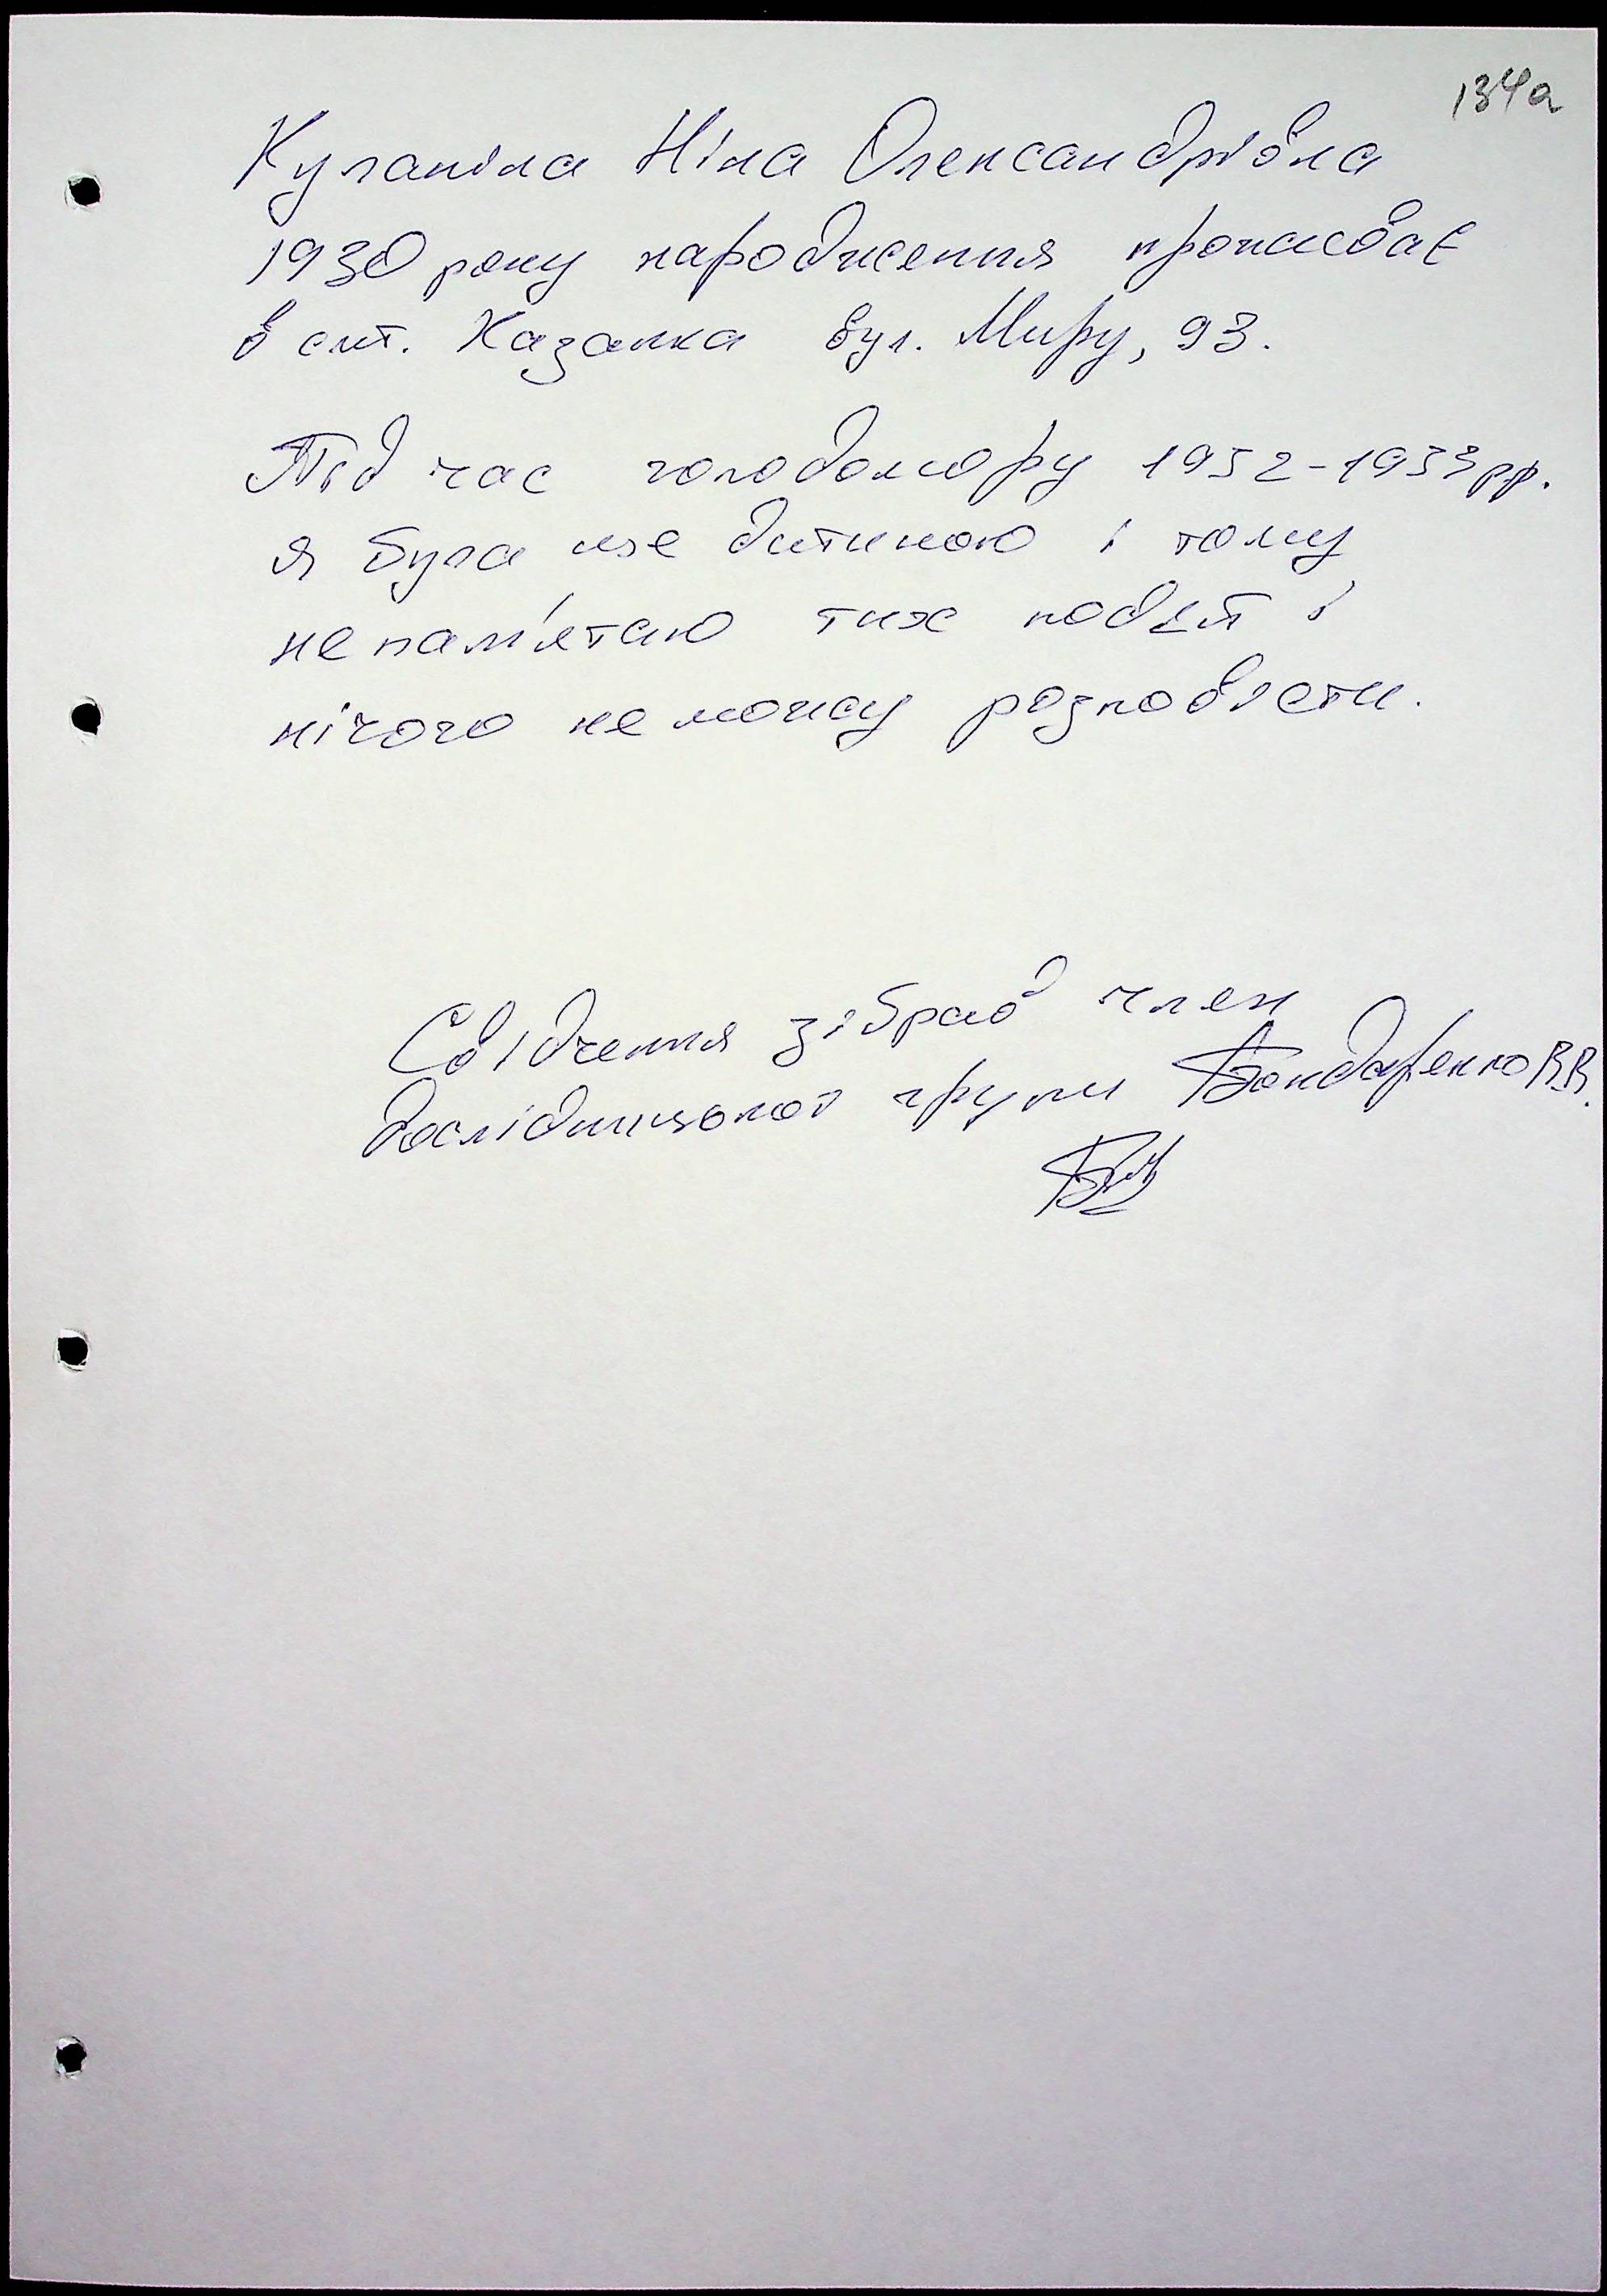 134а
Кулапіна Ніна Олександрівна
1930 року народження проживає
в смт. Казанка вул. Миру, 93.
Під час голодомору 1932-1933 рр.
я була ще дитиною і тому
не пам'ятаю тих подій і
нічого не можу розповісти.
Свідчення зібрав член
дослідницької групи Бондаренко В.В.